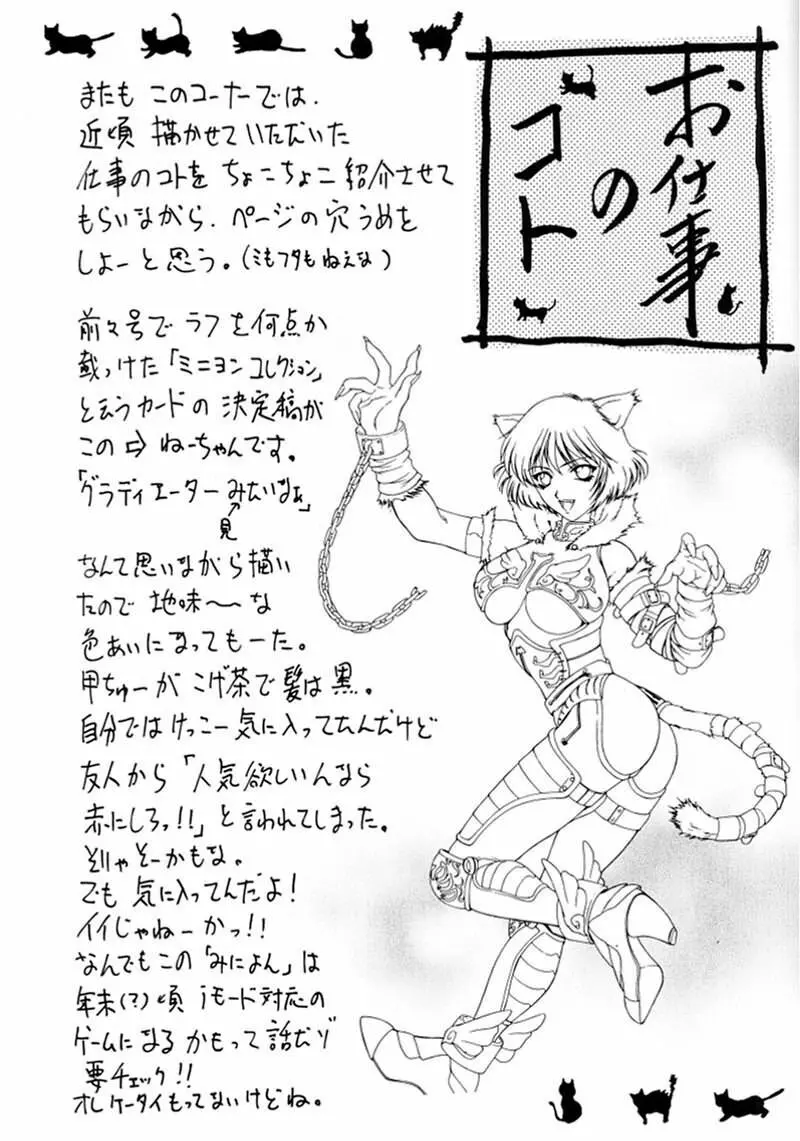 お仕事
の
コト
またも このコーナーでは、
近頃 描かせていただいた
仕事のコトを ちょこちょこ紹介させて
もらいながら、ページの穴うめを
しよーと思う。(ミもフタもねえな)
前々号で ラフを何点か
載っけた「ミニヨンコレクション」
と云うカードの 決定稿が
この⇨ ねーちゃんです。
「グラディエーターみたいなぁ」
見
なんて思いながら描い
たので 地味〜な
色あいになってもーた。
甲ちゅーが こげ茶で髪は黒。
自分ではけっこー気に入ってたんだけど
友人から「人気欲しいんなら
赤にしろっ!!」と言われてしまった。
そりゃそーかもな。
でも 気に入ってんだよ!
イイじゃねーかっ!!
なんでもこの「みによん」は
年末(?)頃 iモード対応の
ゲームになるかもって話だゾ
要チェック!!
オレケータイもってないけどね。